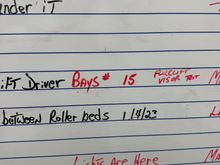 under iT
iFT Driver BAYS # 15 FORKLIFT VISOR TEST M
between Roller beds 1/4/23 L
Lights Are Here